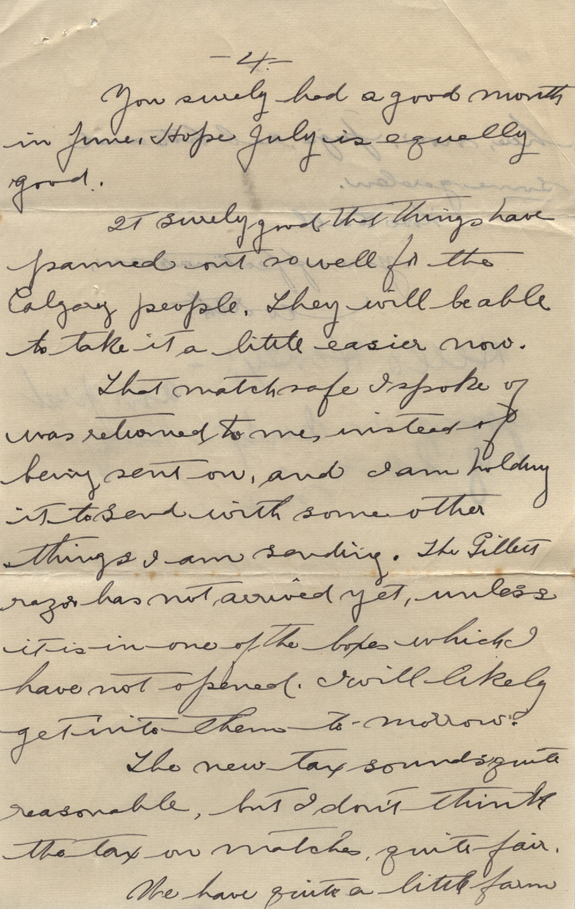 -4-
You surely had a good month
in June. Hope July is equally
good.
It surely good that things have
panned out so well for the
Calgary people. They will be able
to take it a little easier now.
That match safe I spoke of
was returned to me, instead of
being sent on, and I am holding
it to send with some other
things I am sending. The Gillett
razor has not arrived yet, unless
it is in one of the boxes which I
have not opened. I will likely
get into them to-morrow.
The new tax sounds quite
reasonable, but I don't think
the tax on matches, quite fair.
We have quite a little farm